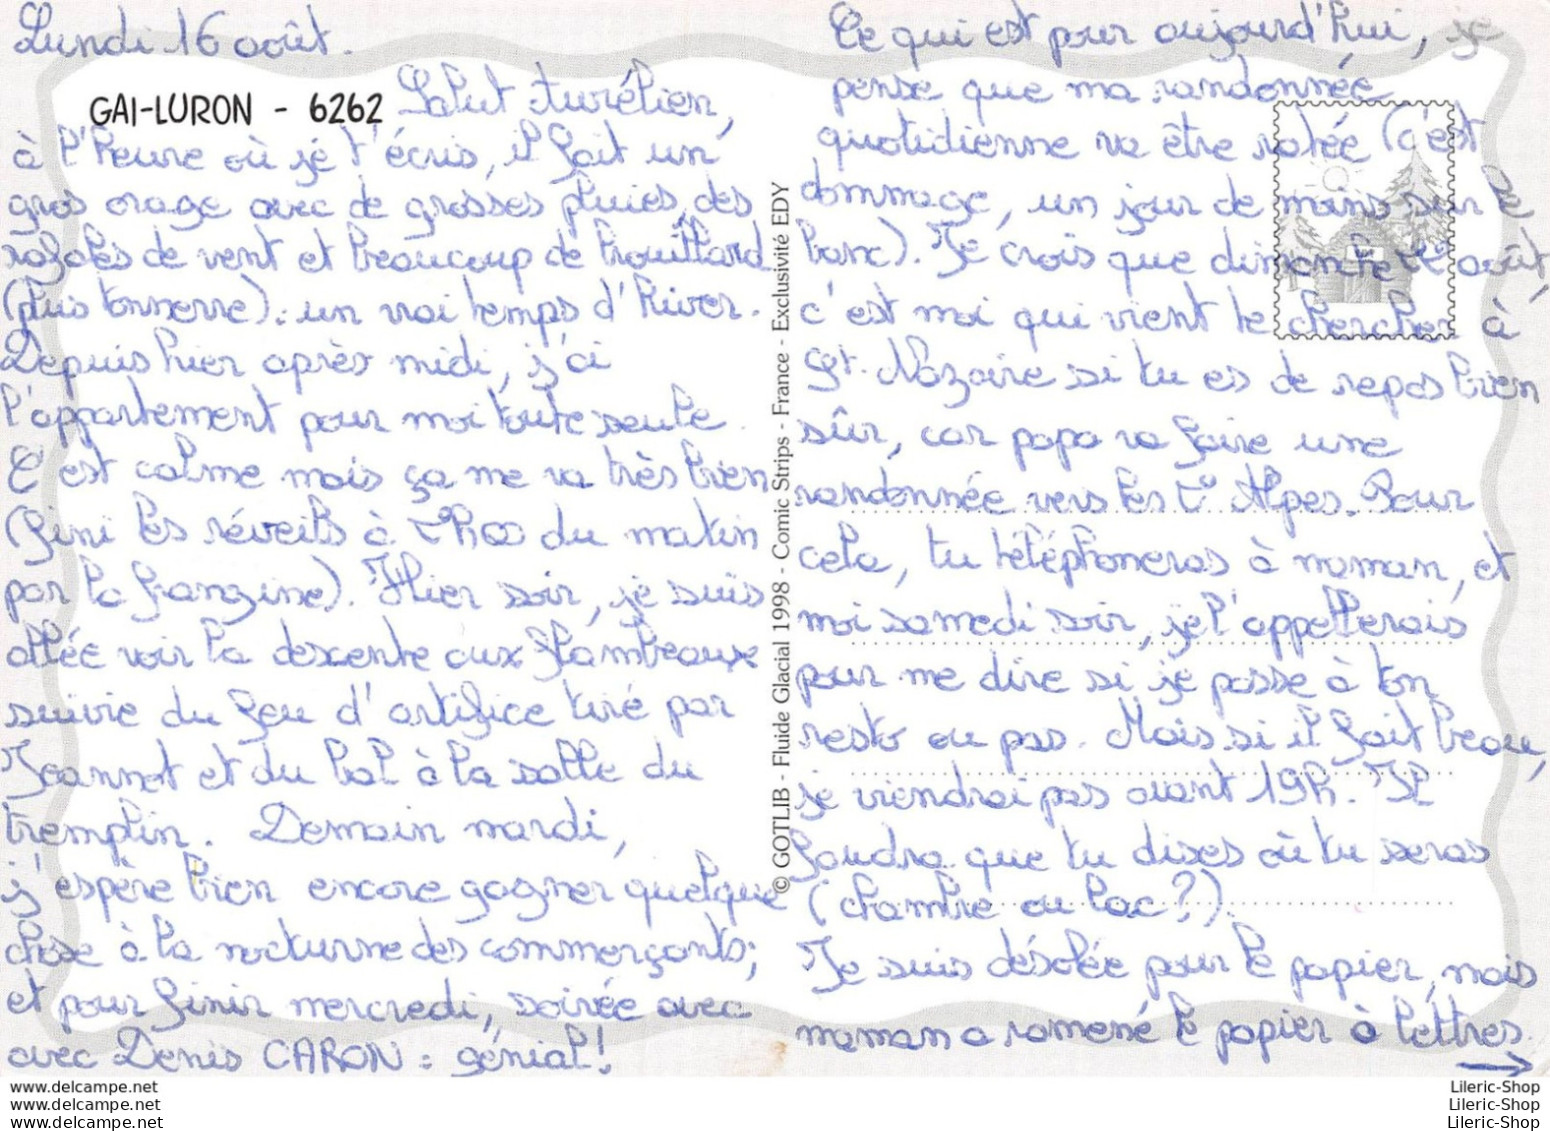 Lundi 16 août.
GAI-LURON - 6262 Salut Aurélien,
à l'heure où je t'écris, il fait un
gros orage avec de grosses pluies, des
rafales de vent et beaucoup de brouillard
(plus tonnerre): un vrai temps d'hiver.
Depuis hier après midi, j'ai
l'appartement pour moi toute seule.
C'est calme mais ça me va très bien
(fini les réveils à 7h00 du matin
par la frangine). Hier soir, je suis
allée voir la descente aux flambeaux
suivie du feu d'artifice tiré par
Jeannot et du bal à la salle du
tremplin. Demain mardi,
j'espère bien encore gagner quelque
chose à la nocturne des commerçants;
et pour finir mercredi, soirée avec
avec Denis CARON = génial!
© GOTLIB - Fluide Glacial 1998 - Comic Strips - France - Exclusivité EDY
Ce qui est pour aujourd'hui, je
pense que ma randonnée
quotidienne va être ratée (c'est
dommage, un jour de moins sur le
banc). Je crois que dimanche août,
c'est moi qui vient te chercher à
St. Nazaire si tu es de repos bien
sûr, car papa va faire une
randonnée vers les Alpes. Pour
cela, tu téléphoneras à maman, et
moi samedi soir, je t'appellerais
pour me dire si je passe à ton
resto ou pas. Mais si il fait beau,
je viendrai pas avant 19h. Il
faudra que tu dises où tu seras
(chambre ou lac?).
Je suis désolée pour le papier, mais
maman a ramené le papier à lettres.
→
www.delcampe.net
www.delcampe.net
www.delcampe.net
Lileric-Shop
Lileric-Shop
Lileric-Shop